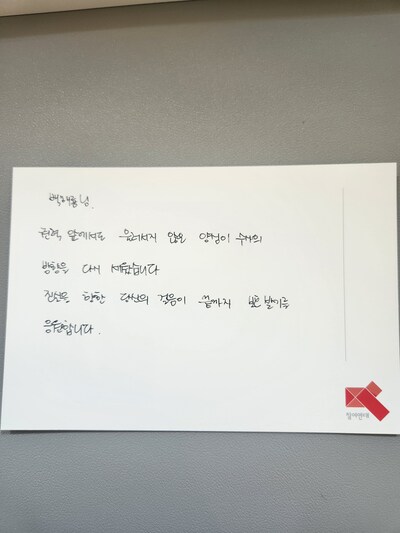 백해룡님.
권력 앞에서도 물러서지 않은 양심이 수사의
방향을 다시 세웠습니다
진실을 향한 당신의 걸음이 끝까지 빛 발하기를
응원합니다.
참여연대